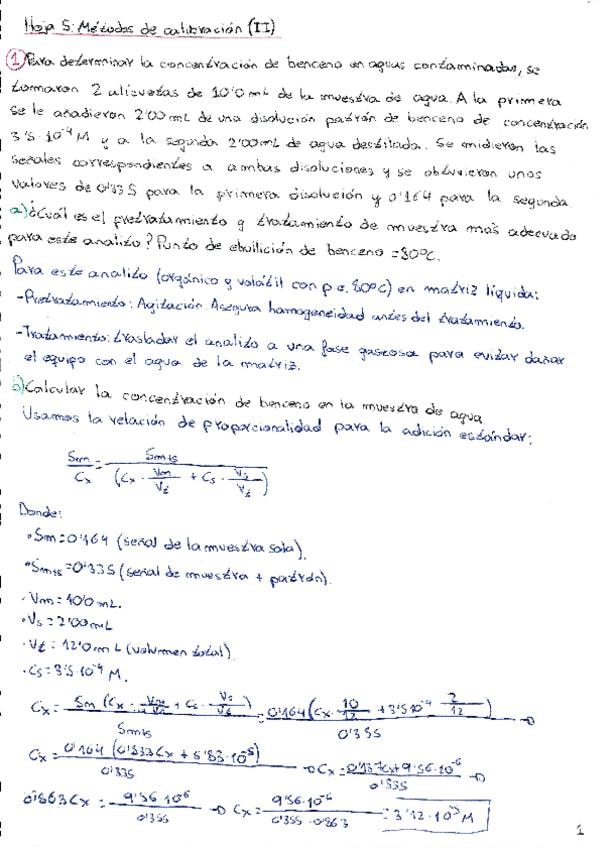 Hoja 5: Métodos de calibración (II)
1) Para determinar la concentración de benceno en aguas contaminadas, se
tomaron 2 alícuotas de 10'0 mL de la muestra de agua. A la primera
se le añadieron 2'00 mL de una disolución patrón de benceno de concentración
3'5·10⁻⁴ M y a la segunda 2'00 mL de agua destilada. Se midieron las
señales correspondientes a ambas disoluciones y se obtuvieron unos
valores de 0'335 para la primera disolución y 0'164 para la segunda.
a) ¿Cuál es el pretratamiento y tratamiento de muestra más adecuado
para este analito? Punto de ebullición de benceno = 80ºC.
Para este analito (orgánico y volátil con p.e. 80ºC) en matriz líquida:
-Pretratamiento: Agitación. Asegura homogeneidad antes del tratamiento.
-Tratamiento: trasladar el analito a una fase gaseosa para evitar dañar
el equipo con el agua de la matriz.
b) Calcular la concentración de benceno en la muestra de agua.
Usamos la relación de proporcionalidad para la adición estándar:
Sm/Cx = Sm+s/(Cx · Vm/Vt + Cs · Vs/Vt)
Donde:
· Sm = 0'164 (señal de la muestra sola).
· Sm+s = 0'335 (señal de muestra + patrón).
· Vm = 10'0 mL.
· Vs = 2'00 mL
· Vt = 12'0 mL (volumen total).
· Cs = 3'5·10⁻⁴ M.
Cx = Sm (Cx · Vm/Vt + Cs · Vs/Vt)/Sm+s = 0'164 (Cx · 10/12 + 3'5·10⁻⁴ 2/12)/0'335 →
Cx = 0'164 (0'833Cx + 5'83·10⁻⁵)/0'335 → Cx = 0'137Cx + 9'56·10⁻⁶/0'335 →
0'863Cx = 9'56·10⁻⁶/0'335 → Cx = 9'56·10⁻⁶/0'335·0'863 = 3'12·10⁻⁵ M
1